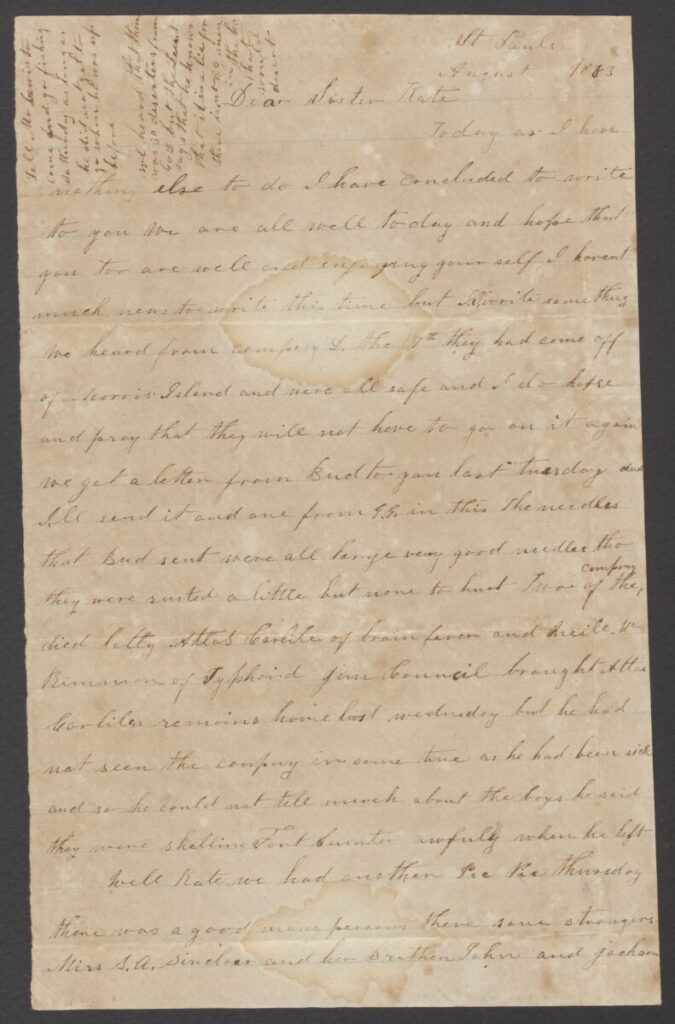 St Pauls
August 1863
Dear Sister Kate
Today as I have
nothing else to do I have concluded to write
to you We are all well today and hope that
you too are well and enjoying your self I havent
much news to write this time but I'll write something
We heard from company D. the 7th they had come off
of Morris Island and were all safe and I do hope
and pray that they will not have to go on it again
we got a letter from Bud to you last tuesday and
I.ll send it and one from G.G. in this The needles
that Bud sent were all large very good needles tho
they were rusted a little but none to hurt Two of the company
died latly Carlile of brain fever and
of Typhoid Jim Council braught
Carliles remains home last wednesday but he had
not seen the company in some time as he had been sick
and so he could not tell much about the boys he said
they were shelling Fort Sumter awfully when he left
Well Kate we had another Pic Nic thursday
there was a good many persons there some strangers
Miss S.A. Sinclair and her Brothers John and Jackson
Tell Mr
come and go fishing
as long as
he did not get to
go when he was up
before
We heard that thare
was 30 deserters from
Co D but the
says that he knows
that it is a lie for
there is not 30 men
in the Co
that
wont
desert